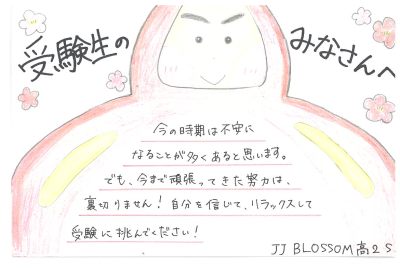 受験生の みなさんへ
今の時期は不安に
なることが多くあると思います。
でも、今まで頑張ってきた努力は、
裏切りません！自分を信じて、リラックスして
受験に挑んでください！
JJ BLOSSOM 高2 S